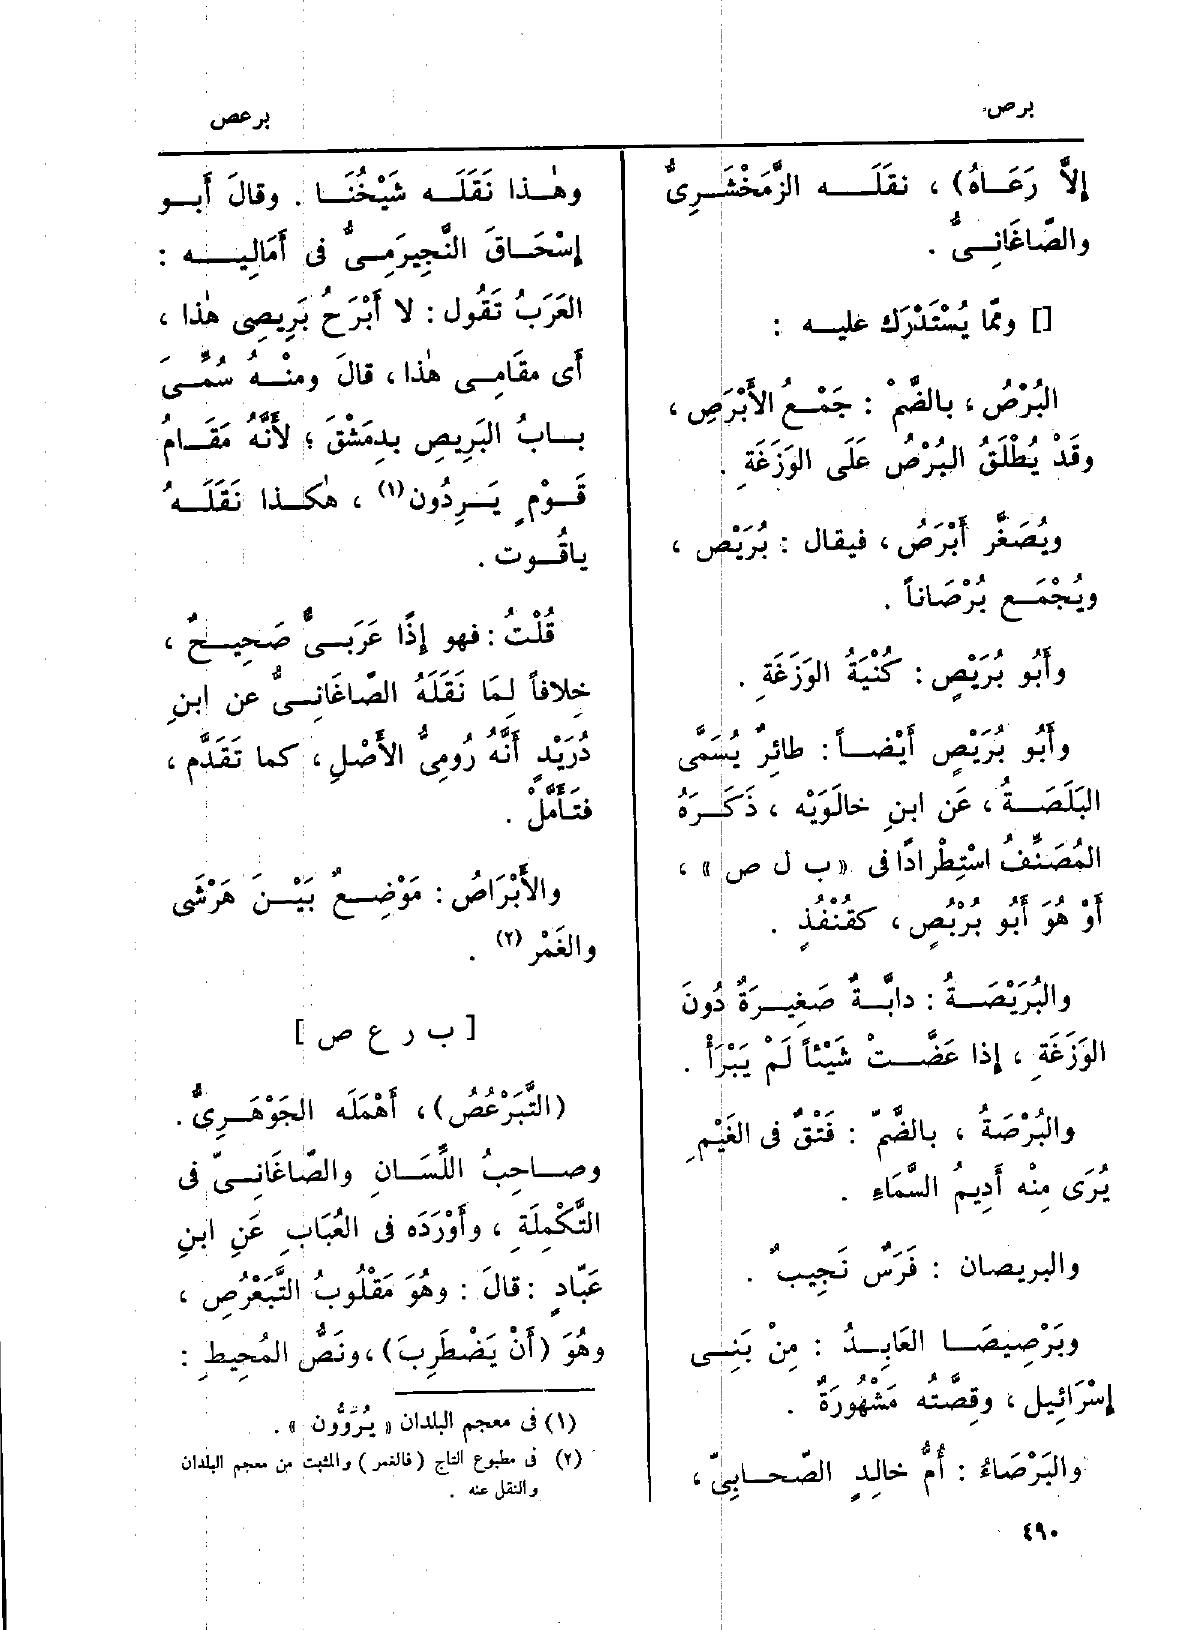 برص
برعص
إلاَّ رَعَاهُ) ، نقلَه الزَّمَخْشَرِىُّ
والصّاغَانِىُّ .
[] وممّا يُسْتَدْرَك عليه :
البُرْصُ ، بالضَّمّ : جَمْعُ الأَبْرَصِ ،
وقَدْ يُطْلَقُ البُرْصُ عَلَى الوَزَغَةِ .
ويُصَغَّر أَبْرَصُ ، فيقال : بُرَيْص ،
ويُجْمَع بُرْصَاناً .
وأَبُو بُرَيْصٍ : كُنْيَةُ الوَزَغَةِ .
وأَبُو بُرَيْصٍ أَيْضاً : طائِرٌ يُسَمَّى
البَلَصَةُ ، عَن ابنِ خالَوَيْه ، ذَكَرَهُ
المُصَنِّفُ اسْتِطْرادًا فى «ب ل ص» ،
أَوْ هُوَ أَبُو بُرْبُصٍ ، كقُنْفُذٍ .
والبُرَيْصَةُ : دابَّةٌ صَغِيرَةٌ دُونَ
الوَزَغَةِ ، إذا عَضَّتْ شَيْئاً لَمْ يَبْرَأْ .
والبُرْصَةُ ، بالضَّمّ : فَتْقٌ فى الغَيْمِ
يُرَى مِنْه أَدِيمُ السَّمَاءِ .
والبريصان : فَرَسٌ نَجِيبٌ .
وبَرْصِيصَا العَابِدُ : مِنْ بَنِى
إسْرَائِيل ، وقِصَّتُه مَشْهُورَةٌ .
والبَرْصَاءُ : أُمُّ خالِدٍ الصّحابِىّ ،
وهٰذا نَقَلَه شَيْخُنَا . وقالَ أَبو
إسْحَاقَ النَّجِيرَمِىُّ فى أَمَالِيه :
العَرَبُ تَقُول : لا أَبْرَحُ بَرِيصِى هٰذا ،
أَى مقَامِى هٰذا ، قالَ ومنْهُ سُمِّىَ
بابُ البَرِيصِ بدِمَشْقَ ؛ لأَنَّهُ مَقَامُ
قَوْمٍ يَرِدُون(١) ، هٰكذا نَقَلَهُ
ياقُوت .
قُلْتُ : فهو إذًا عَرَبىٌّ صَحِيحٌ ،
خِلافاً لِمَا نَقَلَهُ الصّاغَانِىُّ عن ابنِ
دُرَيْدٍ أَنَّهُ رُومِىُّ الأَصْلِ ، كما تَقَدَّم ،
فتَأَمَّلْ .
والأَبْرَاصُ : مَوْضِعٌ بَيْنَ هَرْشَى
والغَمْر(٢) .
[ ب ر ع ص ]
(التَّبَرْعُصُ) ، أَهْمَلَه الجَوْهَرِىُّ .
وصاحِبُ اللِّسَانِ والصّاغَانِىّ فى
التَّكْمِلَةِ ، وأَوْرَدَه فى العُبَابِ عَنِ ابنِ
عَبّادٍ : قالَ : وهُوَ مَقْلُوبُ التَّبَعْرُصِ ،
وهُوَ (أَنْ يَضْطَرِبَ) ، ونَصُّ المُحِيطِ :
(١) فى معجم البلدان « يُرَوَّوُن » .
(٢) فى مطبوع التاج (فالغمر) والمثبت من معجم البلدان
والنقل عنه .
٤٩٠